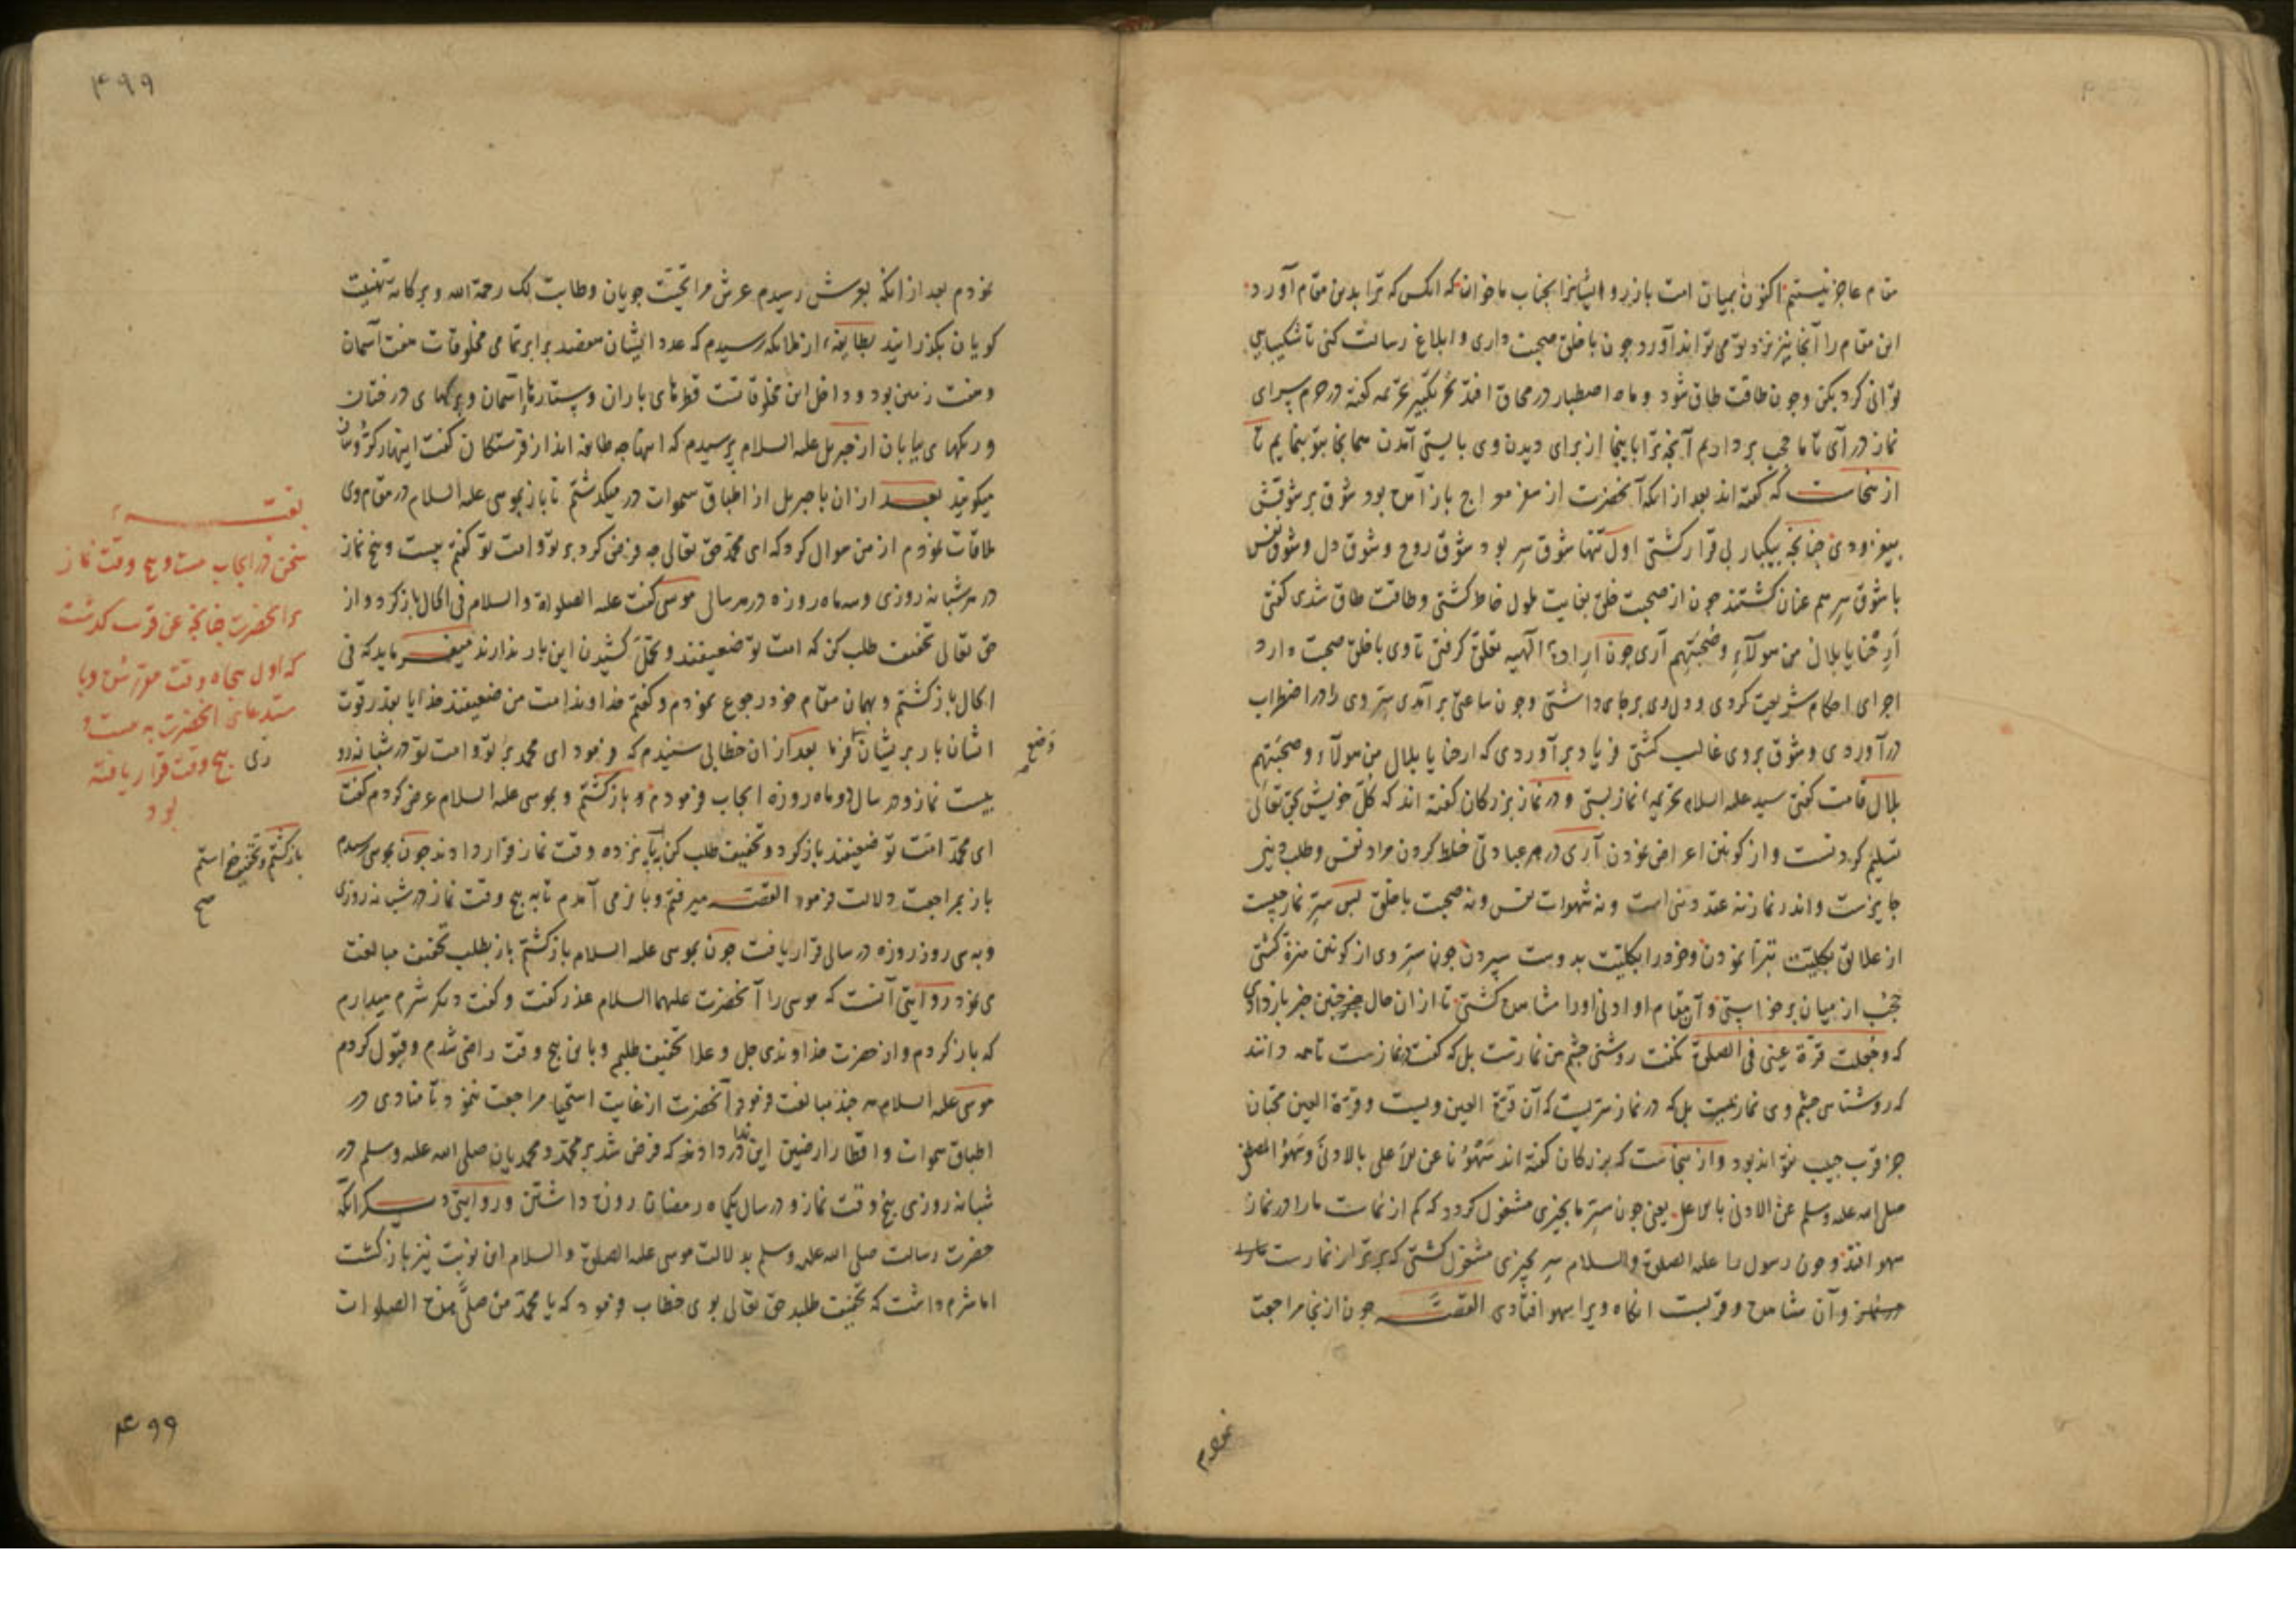 مقام عاجز نیستم اکنون بمیان امت باز رو و ایشانرا بجناب ما خوان که انکس که ترا بدین مقام آورد
این مقام را آنجا نیز نزد تو می تواند آورد چون با خلق صحبت داری و ابلاغ رسالت کنی تا شکیبایی
توانی کرد بکن و چون طاقت طاق شود و ماه اصطبار در محاق افتد تکبیر گفته در حرم سرای
نماز در آی تا ما حجب برداریم آنچه ترا اینجا از برای دیدن وی بایستی آمدن همانجا بتو بنمایم
از ینجاست که گفته اند بعد از انکه آنحضرت از سفر معراج باز آمد بود شوق بر شوقش
بیفزودی چنانچه بیکبار بی قرار گشتی اول تنها شوق سر بود شوق روح و شوق دل و شوق نفس
با شوق سر هم عنان گشتند چون از صحبت خلق بغایت ملول خاطر گشتی و طاقت طاق شدی گفتی
اَرِحْنا یا بلال من هولآءِ وصُحْبَتِهِم آری چون ارادة الهیه تعلق گرفتی تا وی با خلق صحبت دارد
اجرای احکام شریعت کردی و دل وی بر جای داشتی و چون ساعتی بر آمدی ستر وی را در اضطراب
در آوردی و شوق بروی غالب گشتی فریاد بر آوردی که ارحنا یا بلال من هولآء وصحبتهم
بلال قامت گفتی سید علیه السلام نماز بستی و در نماز بزرگان گفته اند که کل خویش بحق تعالی
تسلیم کردنست و از کونین اعراض نمودن آری در هر عبادتی خلط کردن مراد نفس و طلب دنیی
جایزست و اندر نماز نه عقد دنیی است و نه شهوات نفس و نه صحبت با خلق پس سر نماز چیست
از علایق بکلیت تبرا نمودن و خود را بکلیت بدوست سپردن چون سر وی از کونین منزه گشتی
حجب از میان برخواستی و آن مقام او ادنی او را مشاهد گشتی تا از ان حال چنین خبر باز دادی
که وجعلت قرة عینی فی الصلوة نگفت روشنی چشم من نمازست بل که گفت در نمازست تا همه دانند
که روشنایی چشم وی نماز نیست بل که در نماز سریست که آن قرة العین ویست و قرة العین محبان
جز قرب حبیب نتواند بود و از ینجاست که بزرگان گفته اند سَهْوُنا عن الاعلی بالادنی وسَهْوُ المصطفی
صلی الله علیه وسلم عن الادنی بالاعلی یعنی چون سر ما بچیزی مشغول گردد که کم از نمازست ما را در نماز
سهو افتد و چون رسول را علیه الصلوة والسلام سر بچیزی مشغول گشتی که برتر از نمازست
و آن مشاهده و قربت انگاه ویرا سهو افتادی القصه چون از ینجا مراجعت
نمودم
۴۹۹
نمودم بعد از انکه بعرش رسیدم عرش مرا تحیت جویان وطابت لک رحمة الله و برکاته تهنیت
گویان بگذرانید بطایفه از ملایکه رسیدم که عدد ایشان مقصد برابر تمامی مخلوقات هفت آسمان
و هفت زمین بود و داخل این مخلوقاتست قطرهای باران و ستارهای آسمان و برگهای درختان
و ریگهای بیابان از جبریل علیه السلام پرسیدم که اینها چه طایفه اند از فرشتگان گفت اینها را
میگویند بعد از ان با جبریل از اطباق سموات در میگذشتم تا باز بموسی علیه السلام در مقام وی
ملاقات نمودم از من سوال کرد که ای محمد حق تعالی چه فرض کرد بر تو و امت تو گفتم بیست و پنج نماز
در هر شبانه روزی و سه ماه روزه در هر سالی موسی گفت علیه الصلوة والسلام فی الحال باز گرد و از
حق تعالی تخفیف طلب کن که امت تو ضعیفند و تحمل کشیدن این بار ندارند میفرماید که فی
الحال باز گشتم و بهمان مقام خود رجوع نمودم و گفتم خداوندا امت من ضعیفند خدایا بقدر قوت
ایشان بار بر ایشان فرما بعد از ان خطابی شنیدم که فرمود ای محمد بر تو و امت تو در شبانه رو
بیست نماز و در سال دو ماه روزه ایجاب فرمودم و باز گشتم و بموسی علیه السلام عرض کردم گفت
ای محمد امت تو ضعیفند باز گرد و تخفیف طلب کن پانزده وقت نماز قرار دادند چون بموسی رسیدم
باز بمراجعت دلالت فرمود القصه میرفتم و باز می آمدم تا به پنج وقت نماز در شبانه روزی
و به سی روز روزه در سالی قرار یافت چون بموسی علیه السلام باز گشتم باز بطلب تخفیف مبالغت
می نمود روایتی آنست که موسی را آنحضرت علیهما السلام عذر گفت و گفت دیگر شرم میدارم
که باز گردم و از حضرت خداوندی جل و علا تخفیف طلبم و باین پنج وقت راضی شدم و قبول کردم
موسی علیه السلام هر چند مبالغت فرمود آنحضرت از غایت استحیا مراجعت ننمود تا منادی در
اطباق سموات و اقطار ارضین این ندا در دادند که فرض شد بر محمد و محمدیان صلی الله علیه وسلم در
شبانه روزی پنج وقت نماز و در سال یکماه رمضان روزه داشتن و روایتی دیگر آنکه
حضرت رسالت صلی الله علیه وسلم بدلالت موسی علیه الصلوة والسلام این نوبت نیز باز گشت
اما شرم داشت که تخفیف طلبد حق تعالی بوی خطاب فرمود که یا محمد من صلی هذه الصلوات
وضع
سخن در ایجاب بیست و پنج وقت نماز
بر آنحضرت چنانچه عن قرب گذشت
که اول پنجاه وقت مقرر شد و با
ستدعای آنحضرت به بیست و
پنج وقت قرار یافته
بود
باز گشتم و تخفیف خواستم
صح
۴۹۹